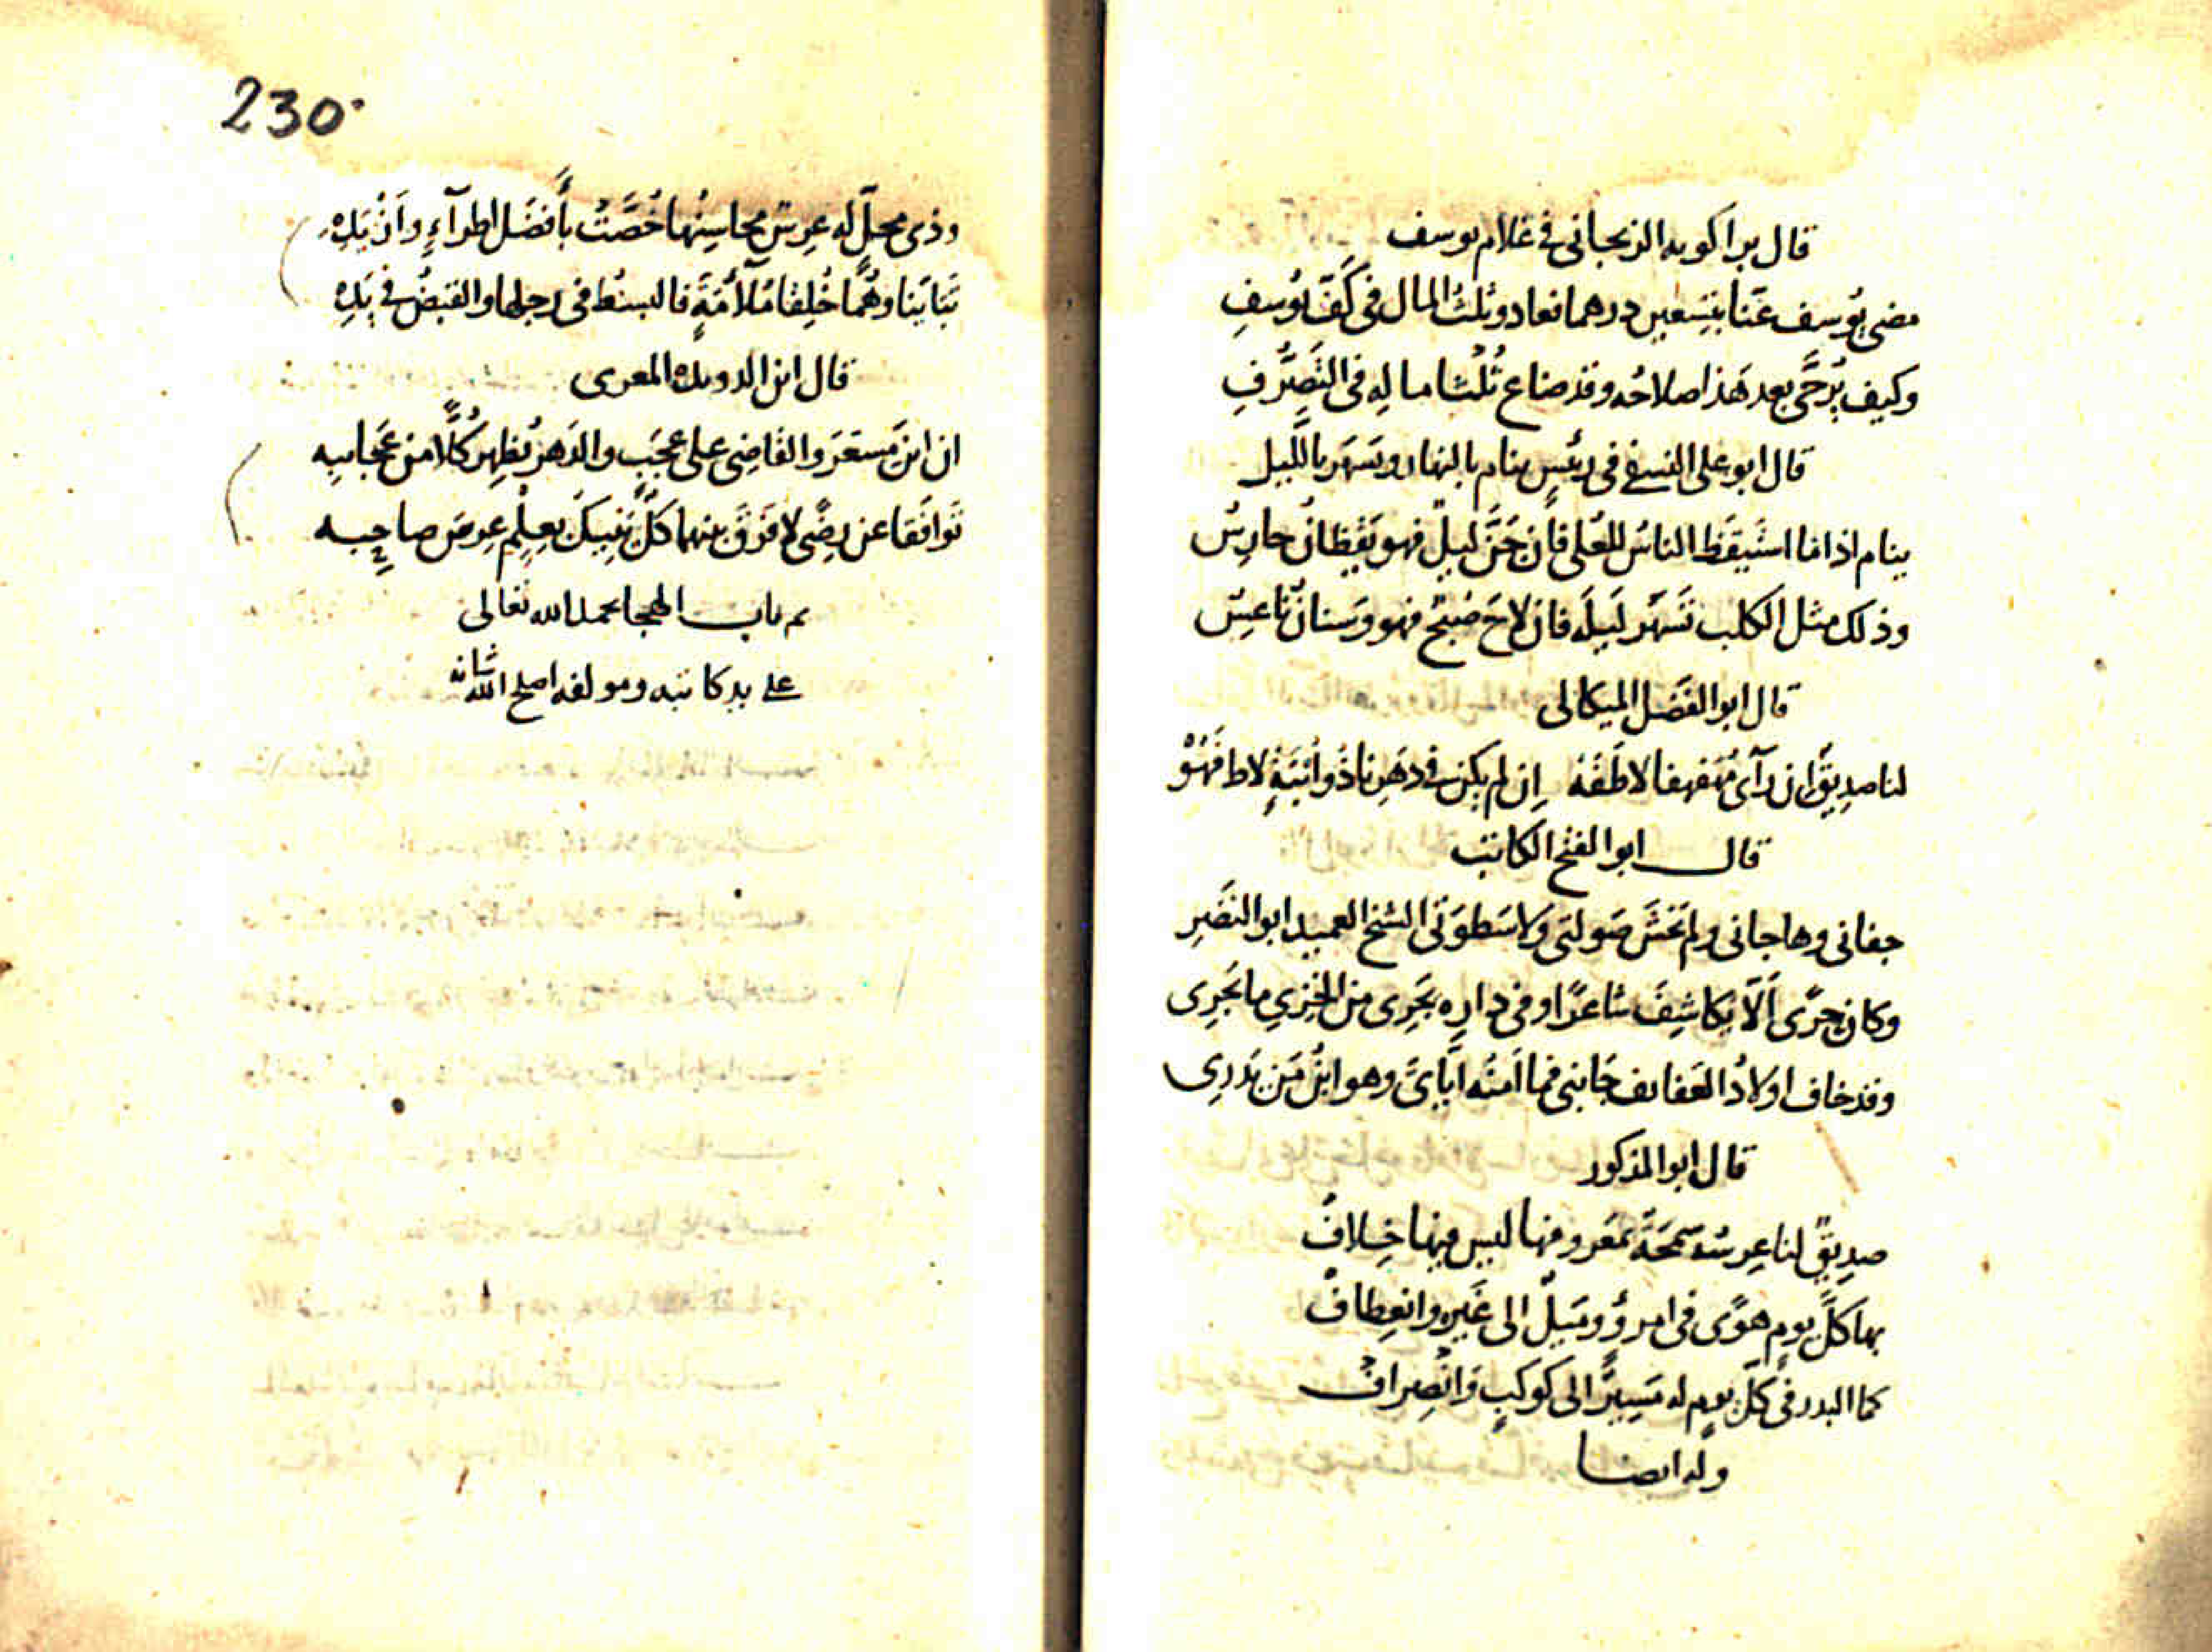 قال براكويه الزنجانى فى غلام يوسف
مضى يوسف عنا بتسعين درهما فعاد وثلث المال فى كف يوسف
وكيف يرجى بعد هذا صلاحه وقد ضاع ثلثا ماله فى التصرف
قال ابو على النسفى فى رئيس ينام بالنهار ويسهر بالليل
ينام اذا ما استيقظ الناس للعلى فان جن ليل فهو يقظان حارس
وذلك مثل الكلب تسهر ليله فان لاح صبح فهو وسنان ناعس
قال ابو الفضل الميكالى
لنا صديق ان رآى مهفهفا لاطفه ان لم يكن فى دهرنا ذو ابنة لاط فهو
قال ابو الفتح الكاتب
جفانى وهاجانى ولم تخش صولتى ولا سطوتى الشيخ العميد ابو النضر
وكان حرى الا يكاشف شاعرا وفى داره يجرى من الخزى ما يجرى
وقد خاف اولاد العفائف جانبى فما امنه اياى وهو ابن من يدرى
قال ابو المذكور
صديق لنا عرسه سمحة بمعروفها ليس فيها خلاف
بها كل يوم هوى فى امرؤ وميل الى غيره وانعطاف
كما البدر فى كل يوم له مسير الى كوكب وانصراف
وله ايضا
230
وذى محل له عرس محاسنها خصت بأفضل اطرآء وازيده
تباينا وهما خلقا ملآمة فالبسط فى رجلها والقبض فى يده
قال ابن الدويدة المعرى
ان ابن مسعر والقاضى على عجب والدهر يظهر كلا من عجابيه
توافقا عن رضى لا فرق بينهما كل ينيك بعلم عرس صاحبه
تم باب الهجا بحمد الله تعالى
على يد كاتبه ومولفه اصلح الله شانه